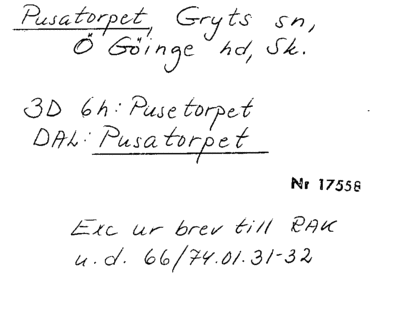 Pusatorpet, Gryts sn,
Ö Göinge hd, Sk.
3D 6h: Pusetorpet
DAL: Pusatorpet
Nr 17558
Exc ur brev till RAK
u.d. 66/74.01.31-32